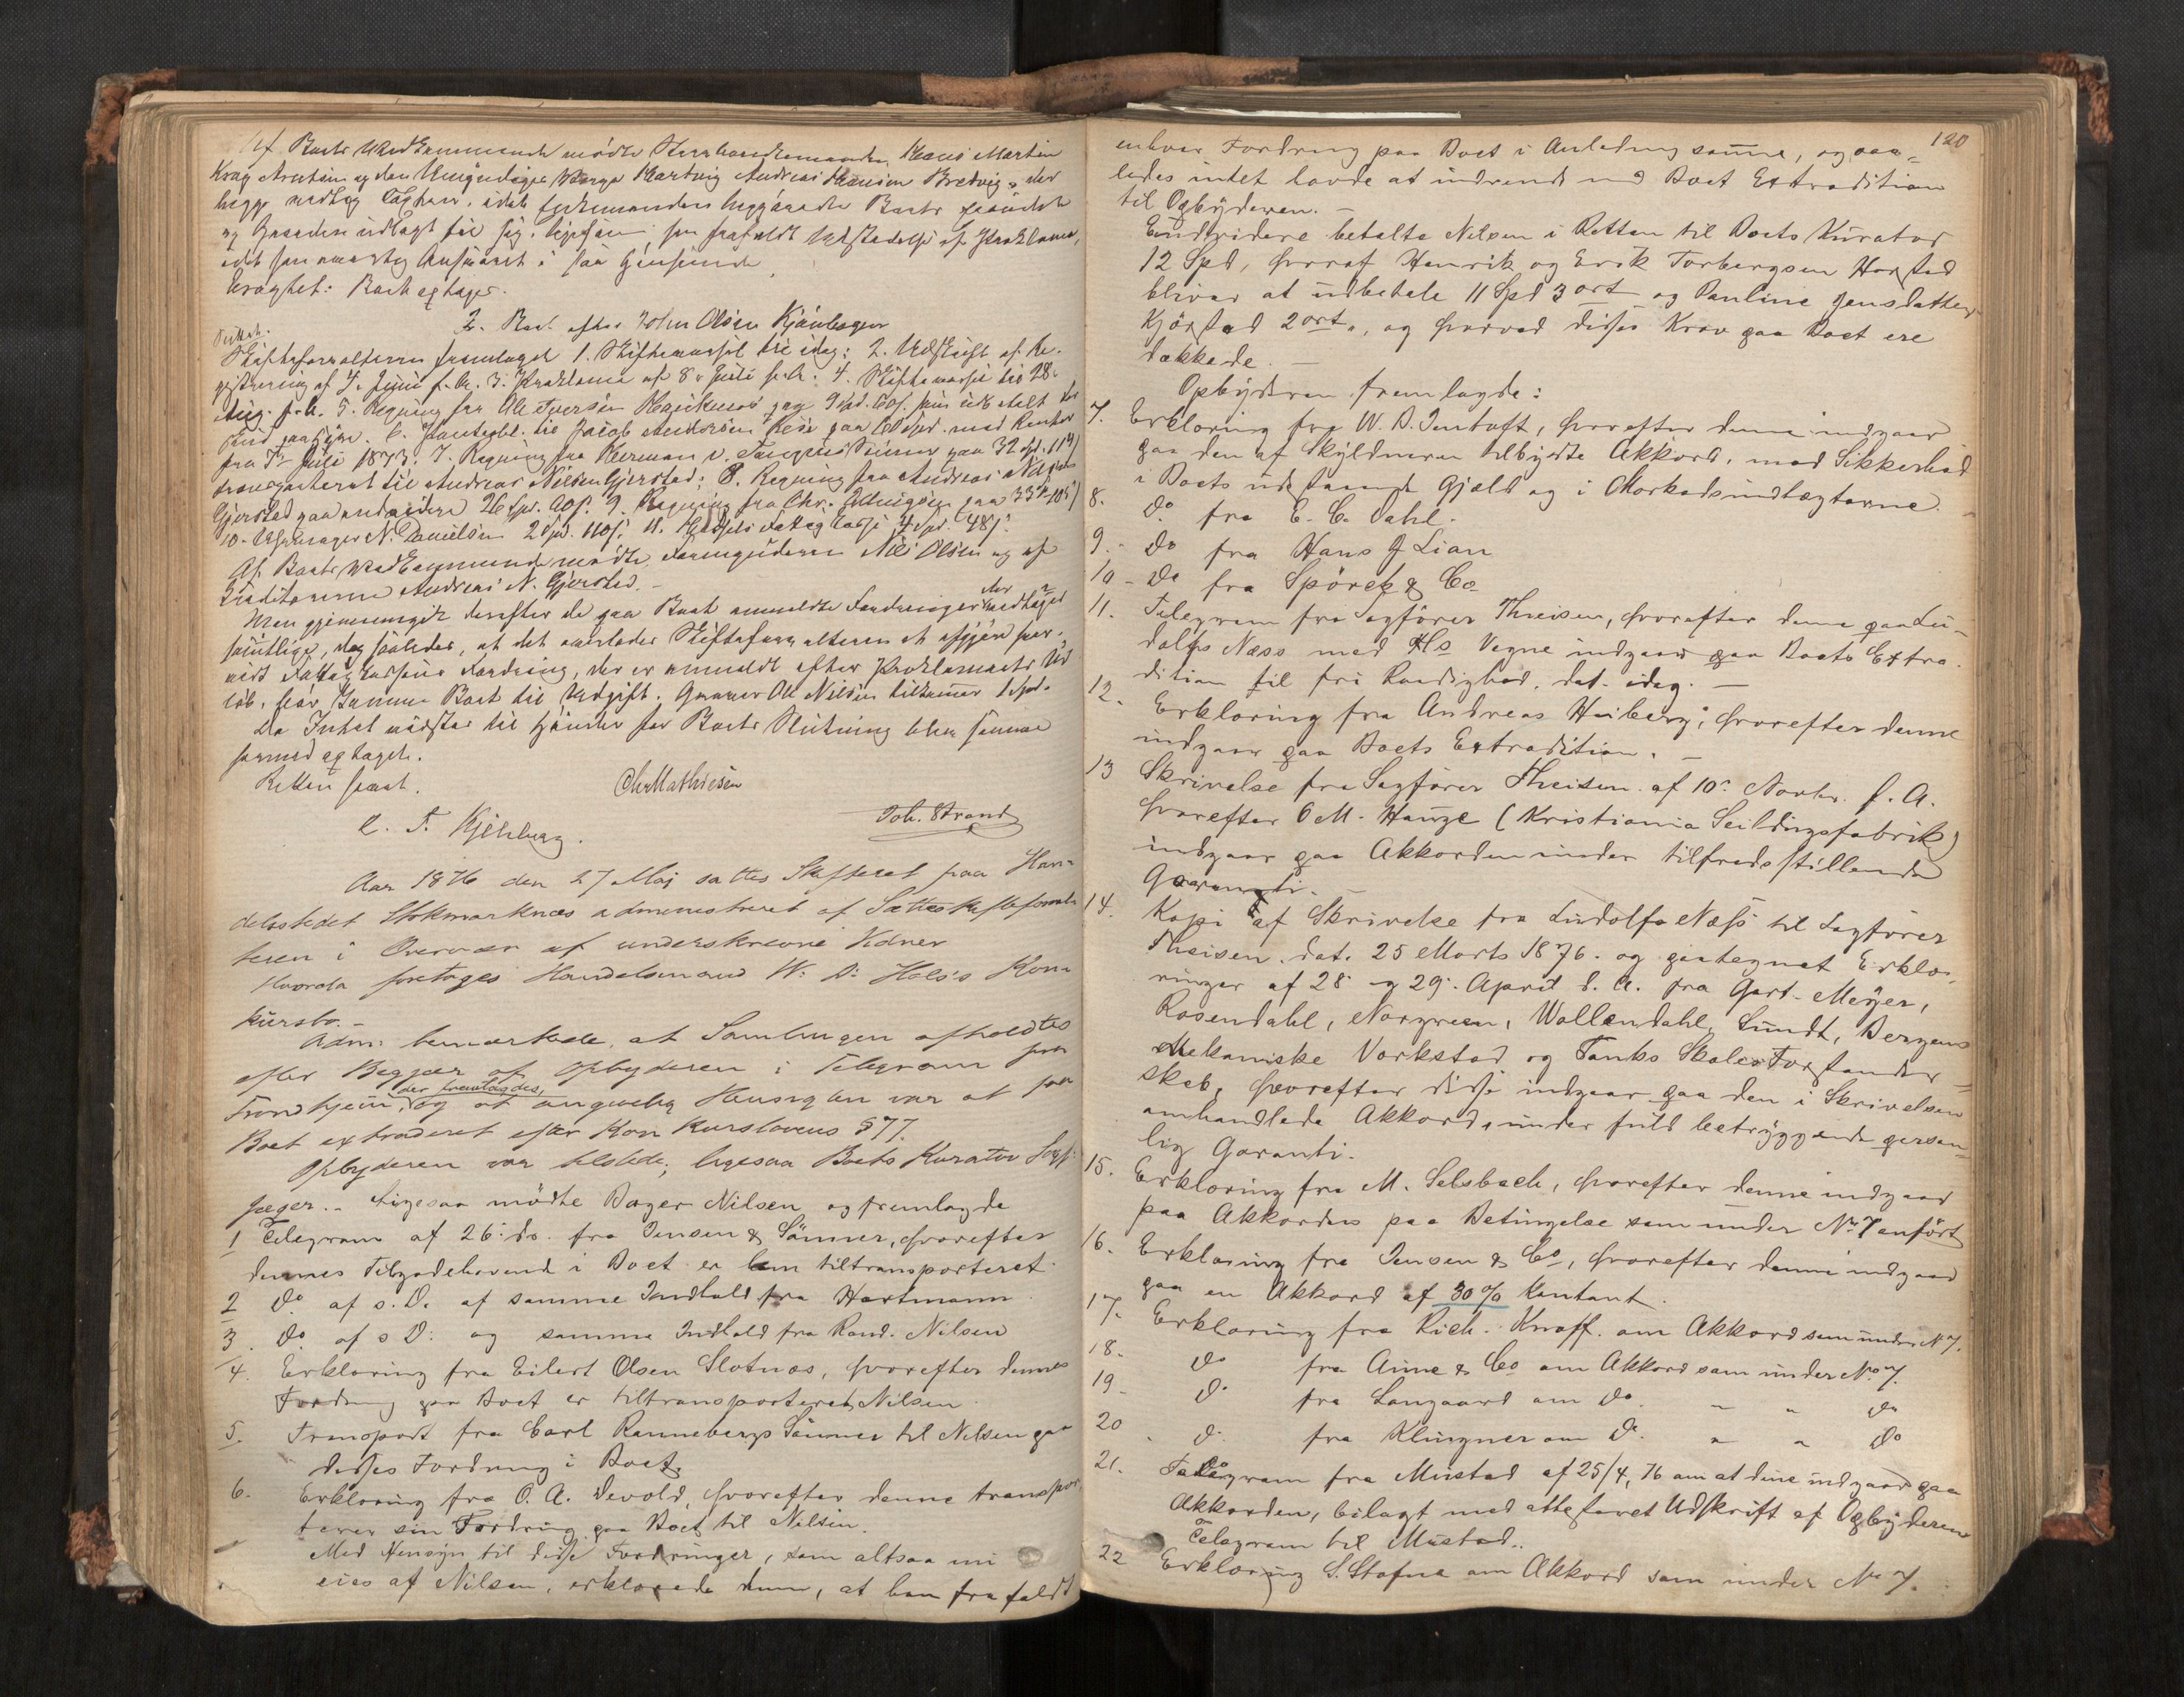 Af Boets Vedkommende mödte Kaarhandlemanden Hans Martin
Krag Arntsen og den Umyndiges Værge Hartvig Andreas Hansen Bretvig, der
begge vedtog Taxten, idet Enkemanden begjærede Boets
og Gjælden udlagt til sig.
idet han overtog Ansvaret i saa Henseende.
Eragtet: Boet optages.
2. Boet efter John Olsen Kjönhagen
Skifteforvalteren fremlagde 1. Skiftevarsel til idag; 2. Udskrift af Re-
gistrering af 7. Juni f. A. 3. Proklama af 8. Juli f. A. 4. Skiftevarsel til 28.
Aug. f. A. 5. Regning fra Ole Iversen paa 9 Spd. 60 s.
6. Panteobl. til Jacob Andersen paa 60 Spd. med Renter
fra Juli 1873. 7. Regning fra Herman v. Tangens Sönner paa 32 Spd. 114
transporteret til Andreas Nilsen Gjersted; 8. Regning fra Andreas Nilsen
Gjersted paa 26 Spd. 20 s. 9. Regning fra Chr. paa 33
10. N. Danielsen 2 Spd. 110 s. 11. Hadsels Fattigkasse 4 Spd. 48 s.
Af Boets Vedkommende mödte Formynderen Nils Olsen og af
Kreditorerne Andreas N. Gjersted.
Man gjennemgik derefter de paa Boet anmeldte Fordringer der vedtoges
samtlige, dog saaledes, at det overlodes Skifteforvalteren at afgjöre hvor-
vidt Fattigkassens Fordring, der er anmeldt efter Proklamaets Ud-
löb, bör komme Boet til Udgift. Ole Nilsen tilkommer 1 Spd.
Da Intet videre til Hinder for Boets Slutning blev samme
hermed optaget.
Retten hævet.
Chr Mathiesen
C. F. Kjelsberg.
Joh. Strand
Aar 1876 den 27 Maj sattes Skifteret paa Han-
delsstedet Stokmarknæs administreret af Sætteskifteforval-
teren i Overvær af underskrevne Vidner
Hvorda foretoges Handelsmand W. D. Hals's Kon-
kursbo.-
Adm. bemærkede, at Samlingen afholdtes
efter Begjær af Opbyderen i Telegram fra
Trondhjem, der fremlagdes, og at angivelig Hensigten var at faa
Boet extraderet efter Konkurslovens §77.
Opbyderen var tilstede, ligesaa Boets Kurator Sagf.
Jæger. - Ligesaa mödte Bager Nilsen og fremlagde
1 Telegram af 26. ds. fra Jensen & Sönner, hvorefter
dennes Tilgodehavende i Boet er ham tiltransporteret.
2 Do af s. D. af samme Indhold fra Hartmann.
3. Do af s D. og samme Indhold fra Rand. Nilsen
4. Erklæring fra Eilert Olsen Slotnæs, hvorefter dennes
Fordring paa Boet er tiltransporteret Nilsen.
5. Transport fra Carl Rannebergs Sönner til Nilsen paa
disses Fordring i Boet.
6. Erklæring fra O. A. Devold, hvorefter denne transpor-
terer sin Fordring paa Boet til Nilsen.
Med Hensyn til disse Fordringer, som altsaa nu
eies af Nilsen, erklærede denne, at han frafaldt
120
enhver Fordring paa Boet i Anledning samme, og saa-
ledes intet havde at indvende mod Boets Extradition
til Opbyderen. -
Endvidere betalte Nilsen i Retten til Boets Kurator
12 Spd, hvoraf Henrik og Erik Torbergsen Horsted
bliver at udbetale 11 Spd 3 ort og Pauline Jensdatter
Kjörstad 2 ort, og hvorved disses Krav paa Boet ere
dækkede. -
Opbyderen fremlagde:
7. Erklæring fra W. D. Jentoft, hvorefter denne indgaar
paa den af Skyldneren tilbydte Akkord, mod Sikkerhed
i Boets udestaaende Gjæld og i Markedsindtægterne.
8. Do fra E. C. Dahl.
9. Do fra Hans J Lian
10 - Do fra Spörck & Co
11. Telegram fra Sagförer Theisen, hvorefter denne paa Lu-
dolfs Næss med Hs Vegne indgaar paa Boets Extra-
dition til fri Raadighed, dat. idag. -
12. Erklæring fra Andreas Heiberg, hvorefter denne
indgaar paa Boets Extradition. -
13 Skrivelse fra Sagförer Theisen af 10. Novbr. f. A.
hvorefter O M. Hauge (Kristiania Seildugsfabrik)
indgaar paa Akkorden under tilfredsstillende
Garanti. -
14. Kopi af Skrivelse fra Ludolfs Næss til Sagförer
Theisen dat. 25 Marts 1876. og paategnet Erklæ-
ringer af 28 og 29. April d. A. fra Gert. Meyer,
Rosendahl, Norgreen, Wollendahl, Sundt, Bergens
Mekaniske Værksted og Tanks Skoles Forstander-
skab, hvorefter disse indgaar paa den i Skrivelsen
omhandlede Akkord, under fuld betryggende person-
lig Garanti.
15. Erklæring fra M. Selsbach, hvorefter denne indgaar
paa Akkorden paa Betingelse som under No 7 anfört
16. Erklæring fra Jensen & Co, hvorefter denne indgaar
paa en Akkord af 30% Kontant.
17. Erklæring fra Rich. Knoff. om Akkord som under No 7.
18. Do fra Anne & Co om Akkord som under No 7.
19 - Do fra Langaard om Do " " Do
20 Do. fra Klingner om Do. " " Do
21. Telegram fra Mustad af 25/4, 76 om at dene indgaar paa
Akkorden, bilagt med attesteret Udskrift af Opbyderens
Telegram til Mustad.
22 Erklæring S. Stafne om Akkord som under No 7.